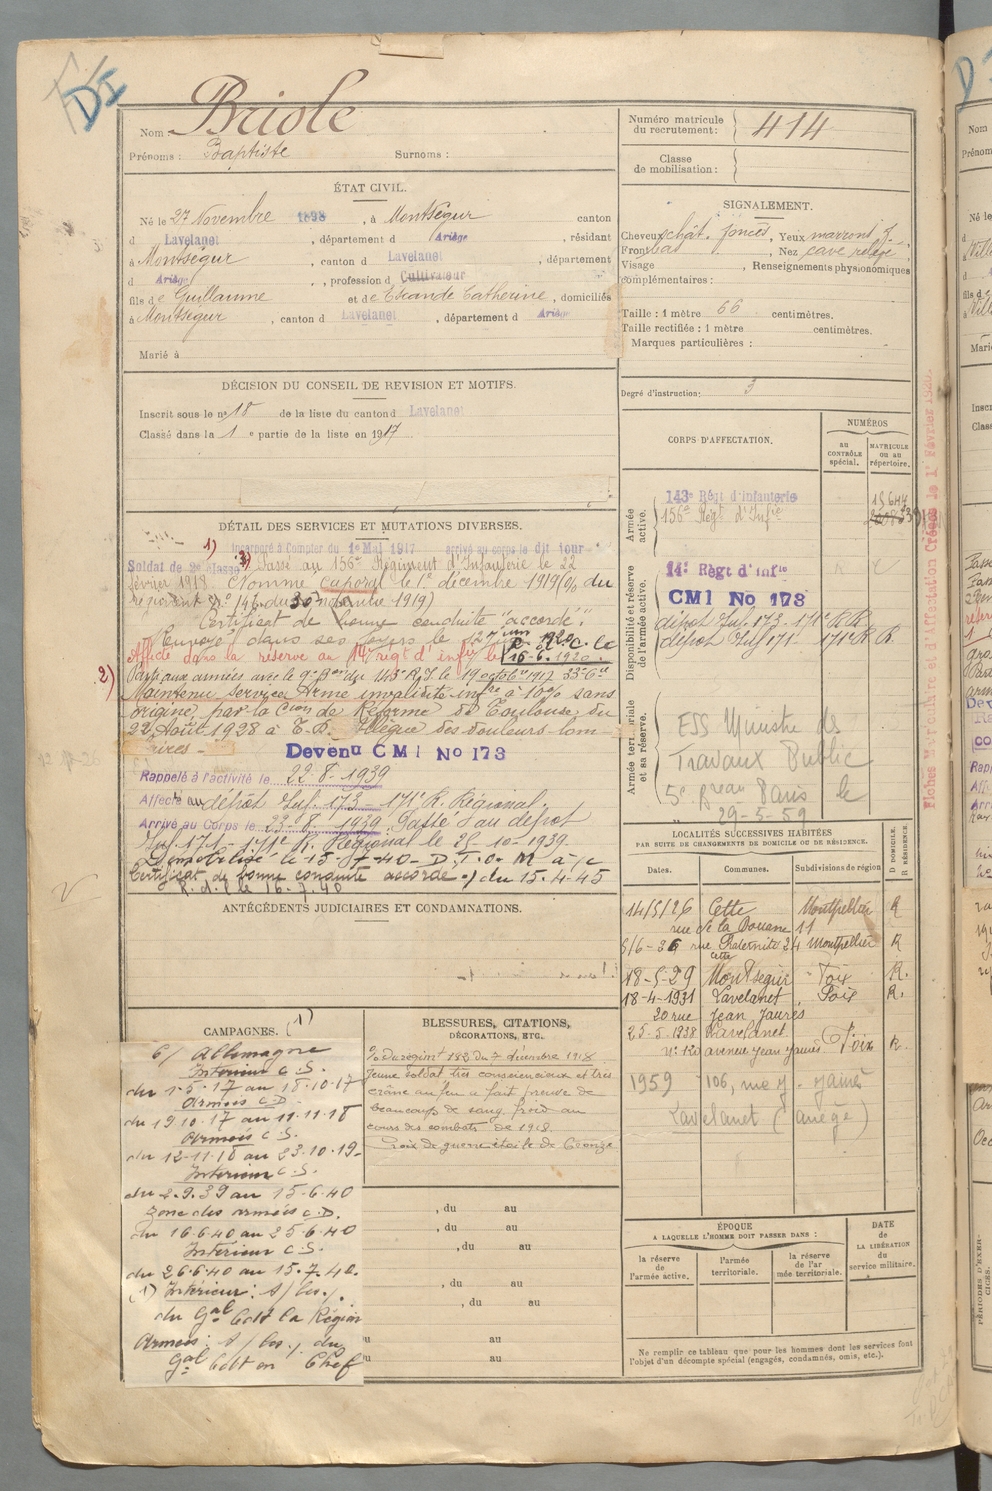 Nom : Briole
Prénoms : Baptiste Surnoms :
Numéro matricule du recrutement : 414
Classe de mobilisation :
ÉTAT CIVIL.
Né le 27 Novembre 1898, à Montségur canton
d Lavelanet, département d Ariège, résidant
à Montségur, canton d Lavelanet, département
d Ariège, profession d Cultivateur
fils de Guillaume et de Escande Catherine, domiciliés
à Montségur, canton d Lavelanet, département d Ariège
Marié à
SIGNALEMENT.
Cheveux chât. foncés, Yeux marrons f.,
Front bas, Nez cave relevé,
Visage , Renseignements physionomiques
complémentaires :
Taille : 1 mètre 66 centimètres.
Taille rectifiée : 1 mètre centimètres.
Marques particulières :
Degré d'instruction: 3
DÉCISION DU CONSEIL DE REVISION ET MOTIFS.
Inscrit sous le n° 18 de la liste du canton d Lavelanet
Classé dans la 1e partie de la liste en 1917
DÉTAIL DES SERVICES ET MUTATIONS DIVERSES.
1) Incorporé à Compter du 1e Mai 1917 arrivé au corps le dit jour
Soldat de 2e classe 3) Passé au 156e Régiment d'Infanterie le 22
février 1918 Nommé caporal le 1er décembre 1919 (o/ du
régiment n° 146 du 30 novembre 1919)
Certificat de bonne conduite "accordé".
Renvoyé dans ses foyers le 27 juin 1920
Affecté dans la réserve au 14e régt d'infie le 16-6-1920.
2) Parti aux armées avec le 9e Bon du 143e R.I. le 19 octobre 1917 33e Cie
Maintenu service Armé invalidité infre à 10% sans
origine par la Cion de Réforme de Toulouse du
22 Août 1928 à T.D. Allègue des douleurs lom-
baires -
Devenu CMI No 173
Rappelé à l'activité le 22-8-1939
Affecté au dépôt Inf. 173 - 171e R. Régional.
Arrivé au Corps le 23-8-1939. Passé au dépôt
Inf. 171 - 171e R. Régional le 25-10-1939.
Démobilisé le 15-7-40 - D.T.O. M à/c
Certificat de bonne conduite accordé o/ du 15-4-45
R.d.l. le 16.7.40
CORPS D'AFFECTATION.
NUMÉROS
au CONTRÔLE spécial.
MATRICULE ou au répertoire.
Armée active.
143e Régt d'Infanterie 15644
156e Régt d'Infie
Disponibilité et réserve de l'armée active.
14e Régt d'Infie
CMI No 173
dépôt Inf. 173 - 171e R.R.
dépôt Inf 171 - 171e R.R.
Armée territoriale et sa réserve.
ESS Ministre des
Travaux Public
5e Breau Paris le
29-5-59
Fiches Matriculaire et d'Affectation Créées le 1er Février 1920.
LOCALITÉS SUCCESSIVES HABITÉES
PAR SUITE DE CHANGEMENTS DE DOMICILE OU DE RÉSIDENCE.
Dates. Communes. Subdivisions de région D DOMICILE. R RÉSIDENCE.
14/5/26 Cette Montpellier R
rue de la Douane 11
rue Fraternité 24 Montpellier R
cette
18-5-29 Montségur Foix R.
18-4-1931 Lavelanet, Foix R.
20 rue Jean Jaurès
25-5-1938 Lavelanet.
n° 120 avenue Jean Jaurès Foix R.
1959 - 106, rue J. Jaurès
Lavelanet (ariège)
ANTÉCÉDENTS JUDICIAIRES ET CONDAMNATIONS.
CAMPAGNES. (1)
C/ Allemagne
Intérieur C.S.
du 1-5-17 au 18-10-17
Armées C.D.
du 19.10.17 au 11-11-18
Armées C.S.
du 12-11-18 au 23-10-19
Intérieur C.S.
du 2.9.39 au 15-6-40
Zone des armées C.D.
du 16.6.40 au 25.6.40
Intérieur C.S.
du 26.6.40 au 15.7.40.
(1) Intérieur : s/
du Gal Cdt la Région
Armées : s/ du
Gal Cdt en Chef
BLESSURES, CITATIONS,
DÉCORATIONS, ETC.
o/ du régimt 182 du 7 décembre 1918
Jeune soldat très consciencieux et très
crâne au feu a fait preuve de
beaucoup de sang froid au
cours des combats de 1918.
Croix de guerre étoile de bronze
, du au
, du au
, du au
, du au
, du au
au
au
ÉPOQUE
A LAQUELLE L'HOMME DOIT PASSER DANS :
la réserve de l'armée active.
l'armée territoriale.
la réserve de l'armée territoriale.
DATE de LA LIBÉRATION du service militaire.
Ne remplir ce tableau que pour les hommes dont les services font
l'objet d'un décompte spécial (engagés, condamnés, omis, etc.).